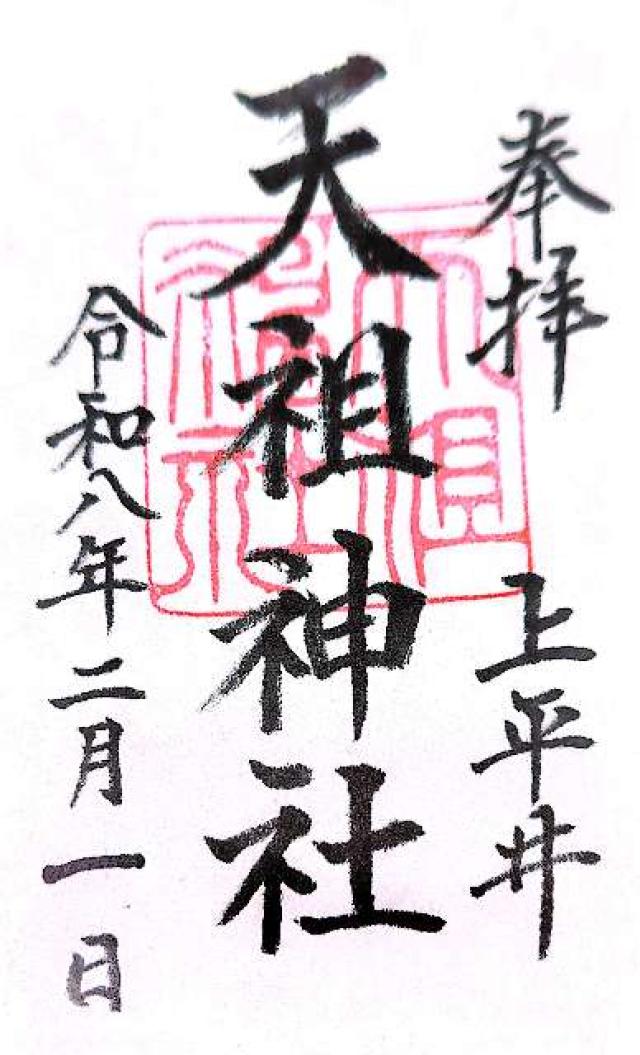 奉拝 上平井
天祖神社
令和八年二月一日
天祖
神社